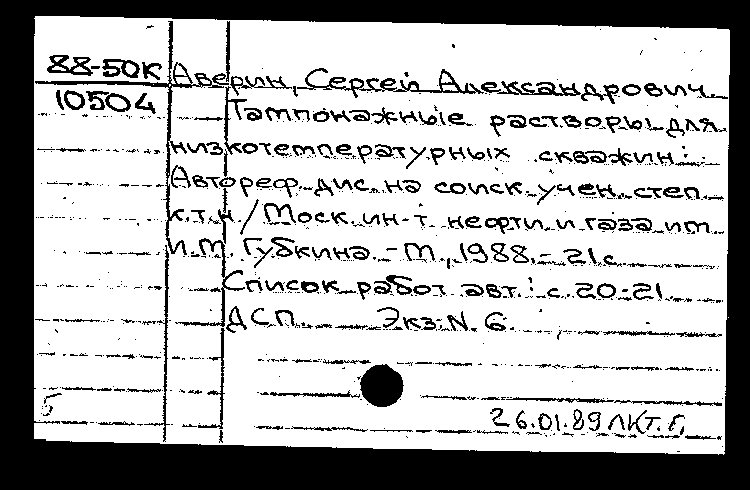 88-50К Аверин, Сергей Александрович.
10504 Тампонажные растворы для
низкотемпературных скважин:
Автореф. дис. на соиск. учен. степ.
к.т.н. / Моск. ин-т нефти и газа им.
И.М. Губкина. - М., 1988. - 21 с.
Список работ авт.: с. 20-21.
ДСП. Экз. N. 6.
5
26.01.89 ЛКТ. Г.